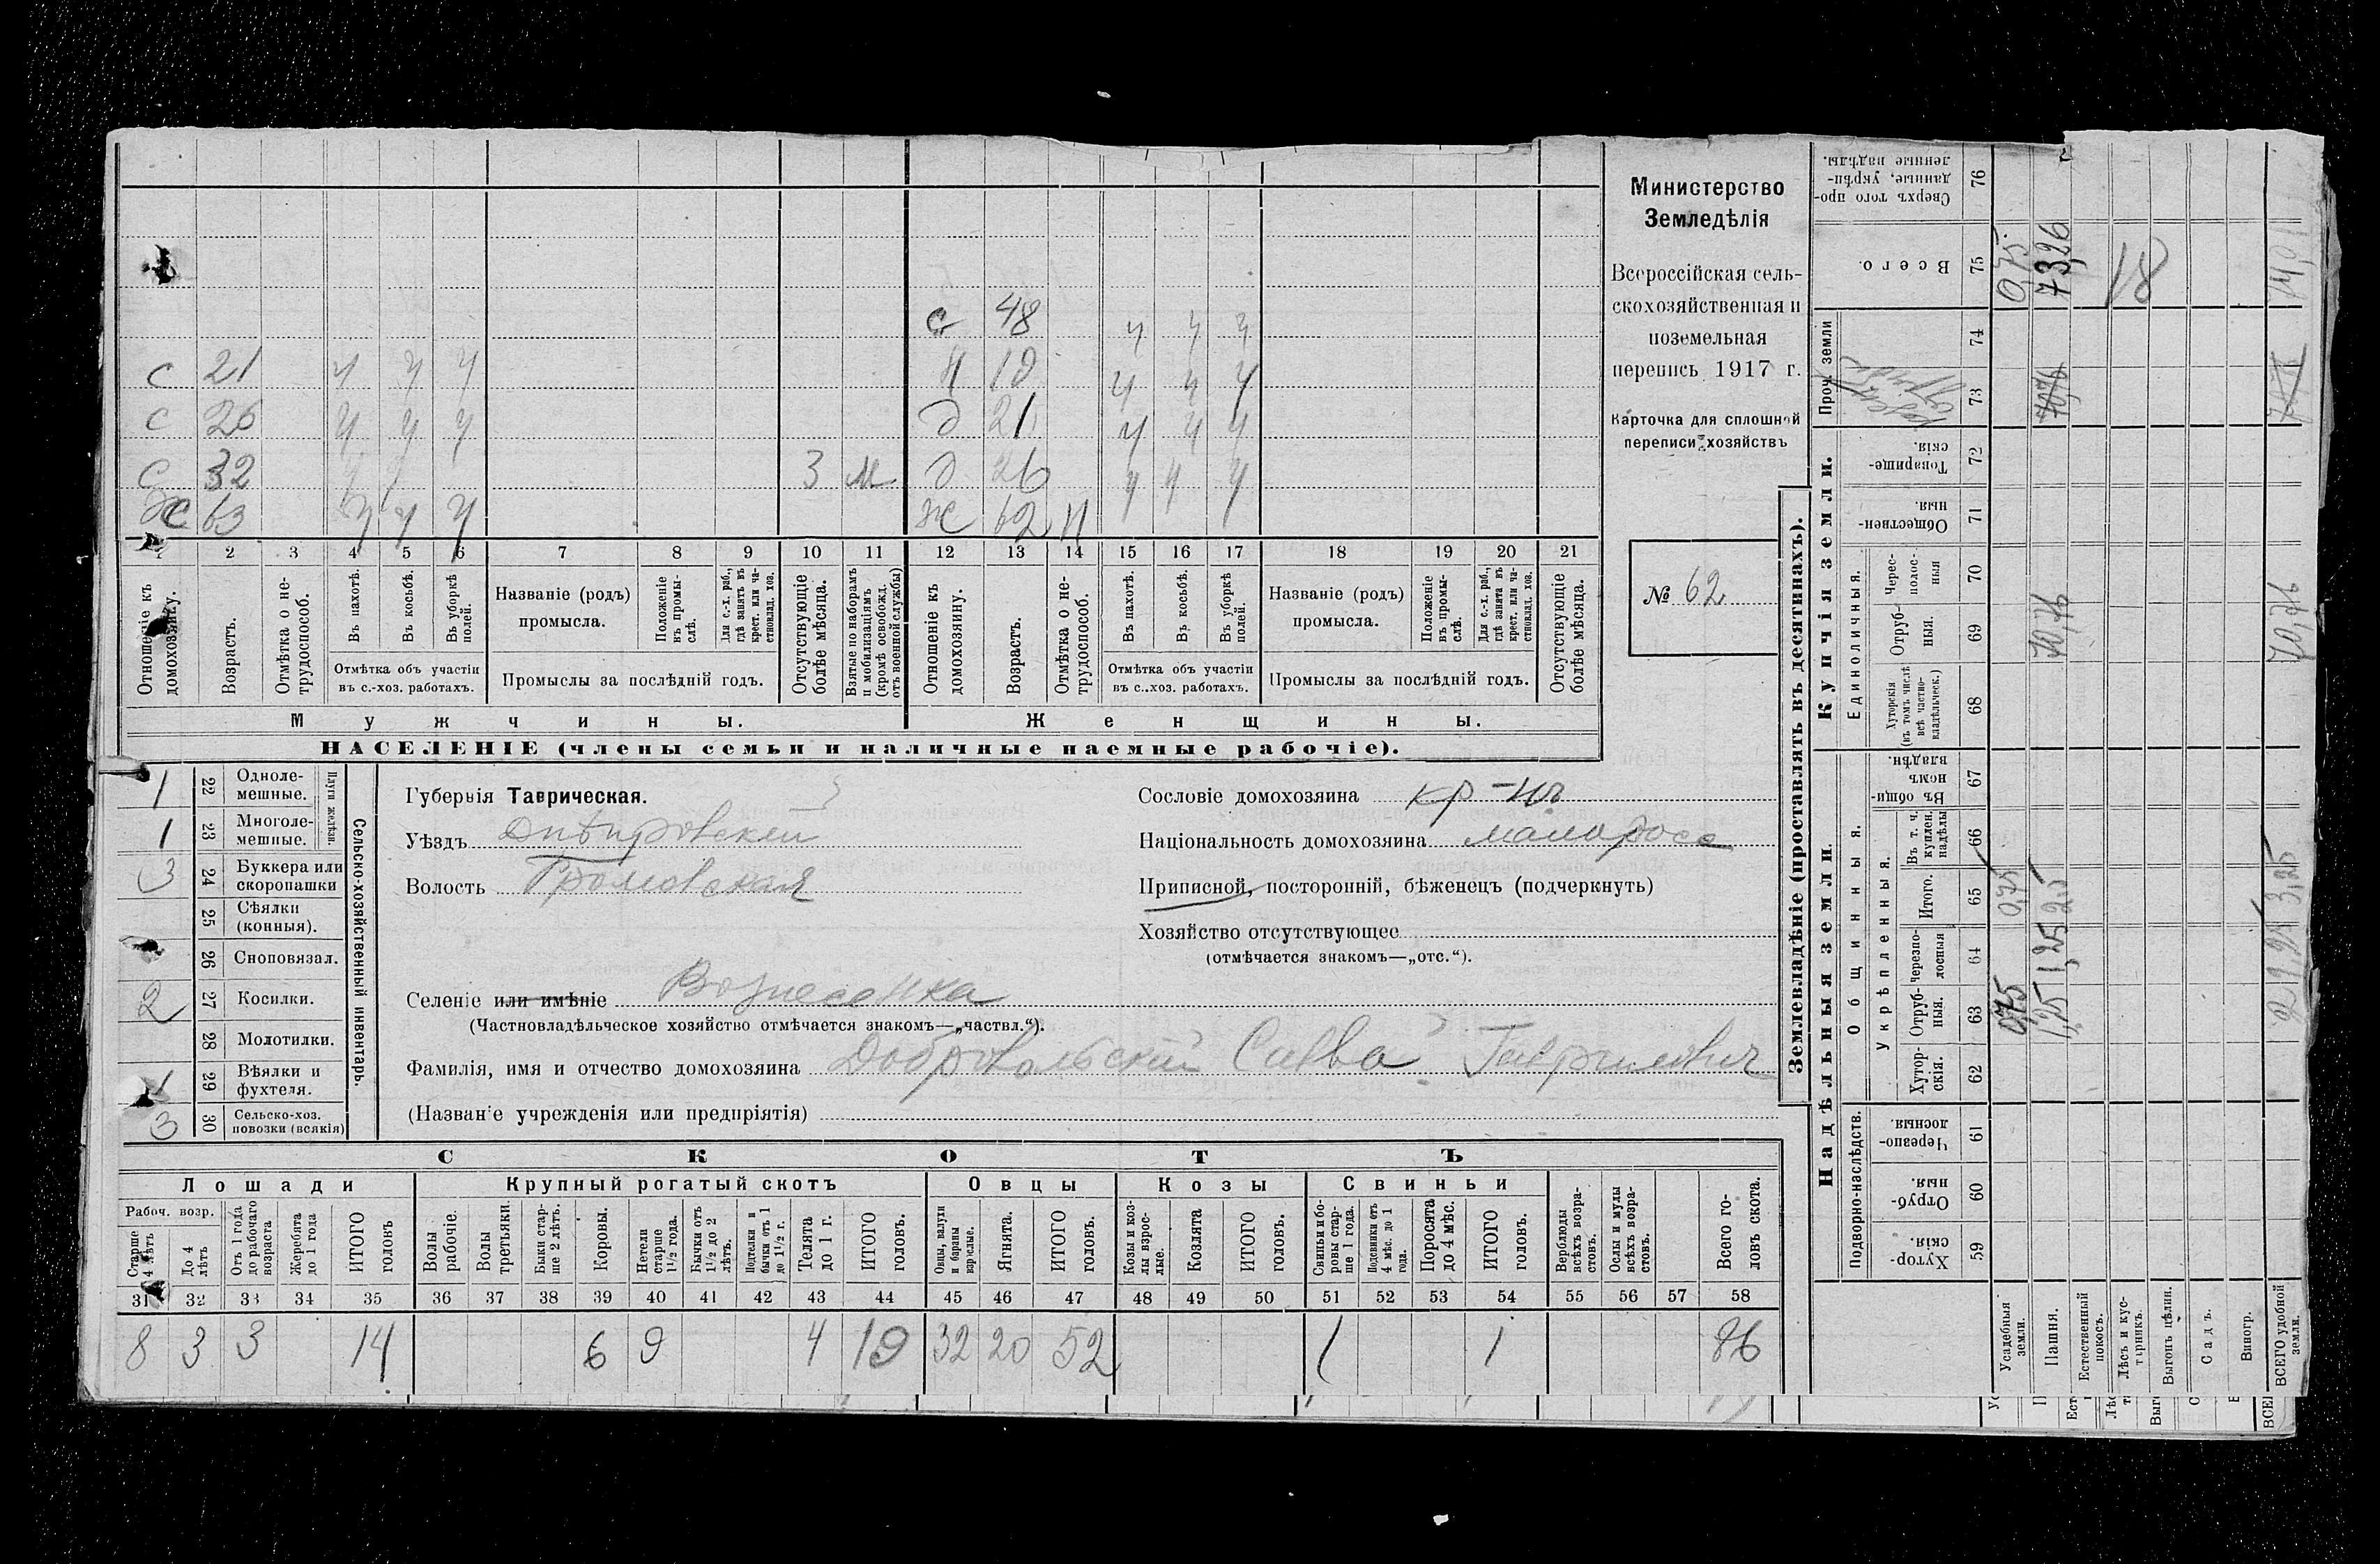 Министерство
Земледѣлія
Всероссійская сель-
скохозяйственная и
поземельная
перепись 1917 г.
Карточка для сплошной
переписи хозяйствъ
№ 62
с 48 ч ч ч
с 21 ч ч ч
ч ч ч
с 26 ч ч ч
д 21 ч ч ч
с 32 3 м
д 26 ч ч ч
63 ч ч ч
ж 62 н
1 2 3 4 5 6 7 8 9 10 11 12 13 14 15 16 17 18 19 20 21
Отношеніе къ домохозяину.
Возрастъ.
Отмѣтка о не-трудоспособ.
Въ пахотѣ.
Въ косьбѣ.
Въ уборкѣ полей.
Отмѣтка объ участіи
въ с.-хоз. работахъ.
Названіе (родъ)
промысла.
Положеніе въ промы-слѣ.
Для с.-х. раб., гдѣ занятъ въ крест. или ча-стновлад. хоз.
Промыслы за послѣдній годъ.
Отсутствующіе болѣе мѣсяца.
Взятые по наборамъ и мобилизаціямъ (кромѣ освобожд. отъ военной службы)
Отношеніе къ домохозяину.
Возрастъ.
Отмѣтка о не-трудоспособ.
Въ пахотѣ.
Въ косьбѣ.
Въ уборкѣ полей.
Отмѣтка объ участіи
въ с..хоз. работахъ.
Названіе (родъ)
промысла.
Положеніе въ промы-слѣ.
Для с.-х. раб., гдѣ занята въ крест. или ча-стновлад. хоз.
Промыслы за послѣдній годъ.
Отсутствующіе болѣе мѣсяца.
Мужчины.
Женщины.
НАСЕЛЕНІЕ (члены семьи и наличные наемные рабочіе).
1 22 Одноле-мешные.
1 23 Многоле-мешные.
Плуги желѣзн.
3 24 Буккера или скоропашки
25 Сѣялки (конныя).
26 Сноповязал.
2 27 Косилки.
28 Молотилки.
1 29 Вѣялки и фухтеля.
3 30 Сельско-хоз. повозки (всякія)
Сельско-хозяйственный инвентарь.
Губернія Таврическая.
Уѣздъ Днѣпровскій
Волость Громовская
Селеніе или имѣніе Вознесенка
(Частновладѣльческое хозяйство отмѣчается знакомъ—„частвл.“).
Фамилія, имя и отчество домохозяина Добровольскій Савва Гавриловичъ
(Названіе учрежденія или предпріятія)
Сословіе домохозяина кр-нъ
Національность домохозяина малороссъ
Приписной, посторонній, бѣженецъ (подчеркнуть)
Хозяйство отсутствующее
(отмѣчается знакомъ—„отс.“).
СКОТЪ
Лошади
Крупный рогатый скотъ
Овцы
Козы
Свиньи
Рабоч. возр.
Старше 4 лѣтъ
До 4 лѣтъ
Отъ 1 года до рабочаго возраста
Жеребята до 1 года
ИТОГО головъ
Волы рабочіе.
Волы третьяки.
Быки стар-ше 2 лѣтъ.
Коровы.
Нетели старше 1½ года.
Бычки отъ 1½ до 2 лѣтъ.
Подтелки и бычки отъ 1 до 1½ г.
Телята до 1 г.
ИТОГО головъ.
Овцы, валухи и бараны взрослые.
Ягнята.
ИТОГО головъ.
Козы и коз-лы взрос-лые.
Козлята
ИТОГО головъ.
Свиньи и бо-ровы стар-ше 1 года.
Подсвинки отъ 4 мѣс. до 1 года.
Поросята до 4 мѣс.
ИТОГО головъ.
Верблюды всѣхъ возра-стовъ.
Ослы и мулы всѣхъ возра-стовъ.
Всего го-ловъ скота.
31 32 33 34 35 36 37 38 39 40 41 42 43 44 45 46 47 48 49 50 51 52 53 54 55 56 57 58
8 3 3 14 6 9 4 19 32 20 52 1 1 86
Землевладѣніе (проставлять въ десятинахъ).
Надѣльныя земли.
Купчія земли.
Проч. земли
Подворно-наслѣдств.
Общинныя.
Укрѣпленныя.
Единоличныя.
Хутор-скія. 59
Отруб-ныя. 60
Черезпо-лосныя. 61
Хутор-скія. 62
Отруб-ныя. 63
Черезпо-лосныя 64
Итого. 65
Въ т. ч. куплен. надѣлы 66
Въ общи-номъ владѣн. 67
Хуторскія (въ томъ числѣ всѣ частно-владѣльческ.) 68
Отруб-ныя. 69
Черес-полос-ныя 70
Обществен-ныя. 71
Товарище-скія. 72
73
74
Всего. 75
Сверхъ того про-данные, укрѣп-ленные надѣлы. 76
Усадебныя земли. 0,75 0,75 0,75
Пашня. 1,25 1,25 70,76 70,76 73,26
Естественный покосъ.
Лѣсъ и кус-тарникъ. 18
Выгонъ цѣлин.
Садъ.
Виногр.
ВСЕГО удобной земли. 3,25 70,76